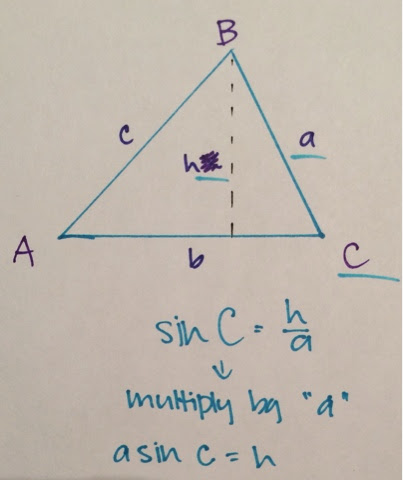 B
c
h
a
A
b
C
sin C = h/a
↓
multiply by "a"
a sin C = h